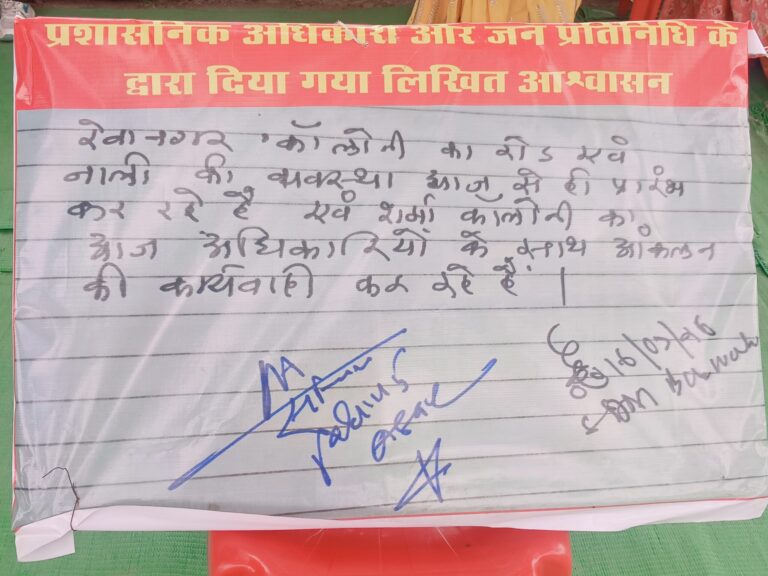 प्रशासनिक अधिकारी और जन प्रतिनिधि के
द्वारा दिया गया लिखित आश्वासन
रेवा नगर कॉलोनी का रोड एवं
नाली की व्यवस्था आज से ही प्रारंभ
कर रहे है एवं शर्मा कॉलोनी का
आज अधिकारियों के साथ आंकलन
की कार्यवाही कर रहे हैं ।